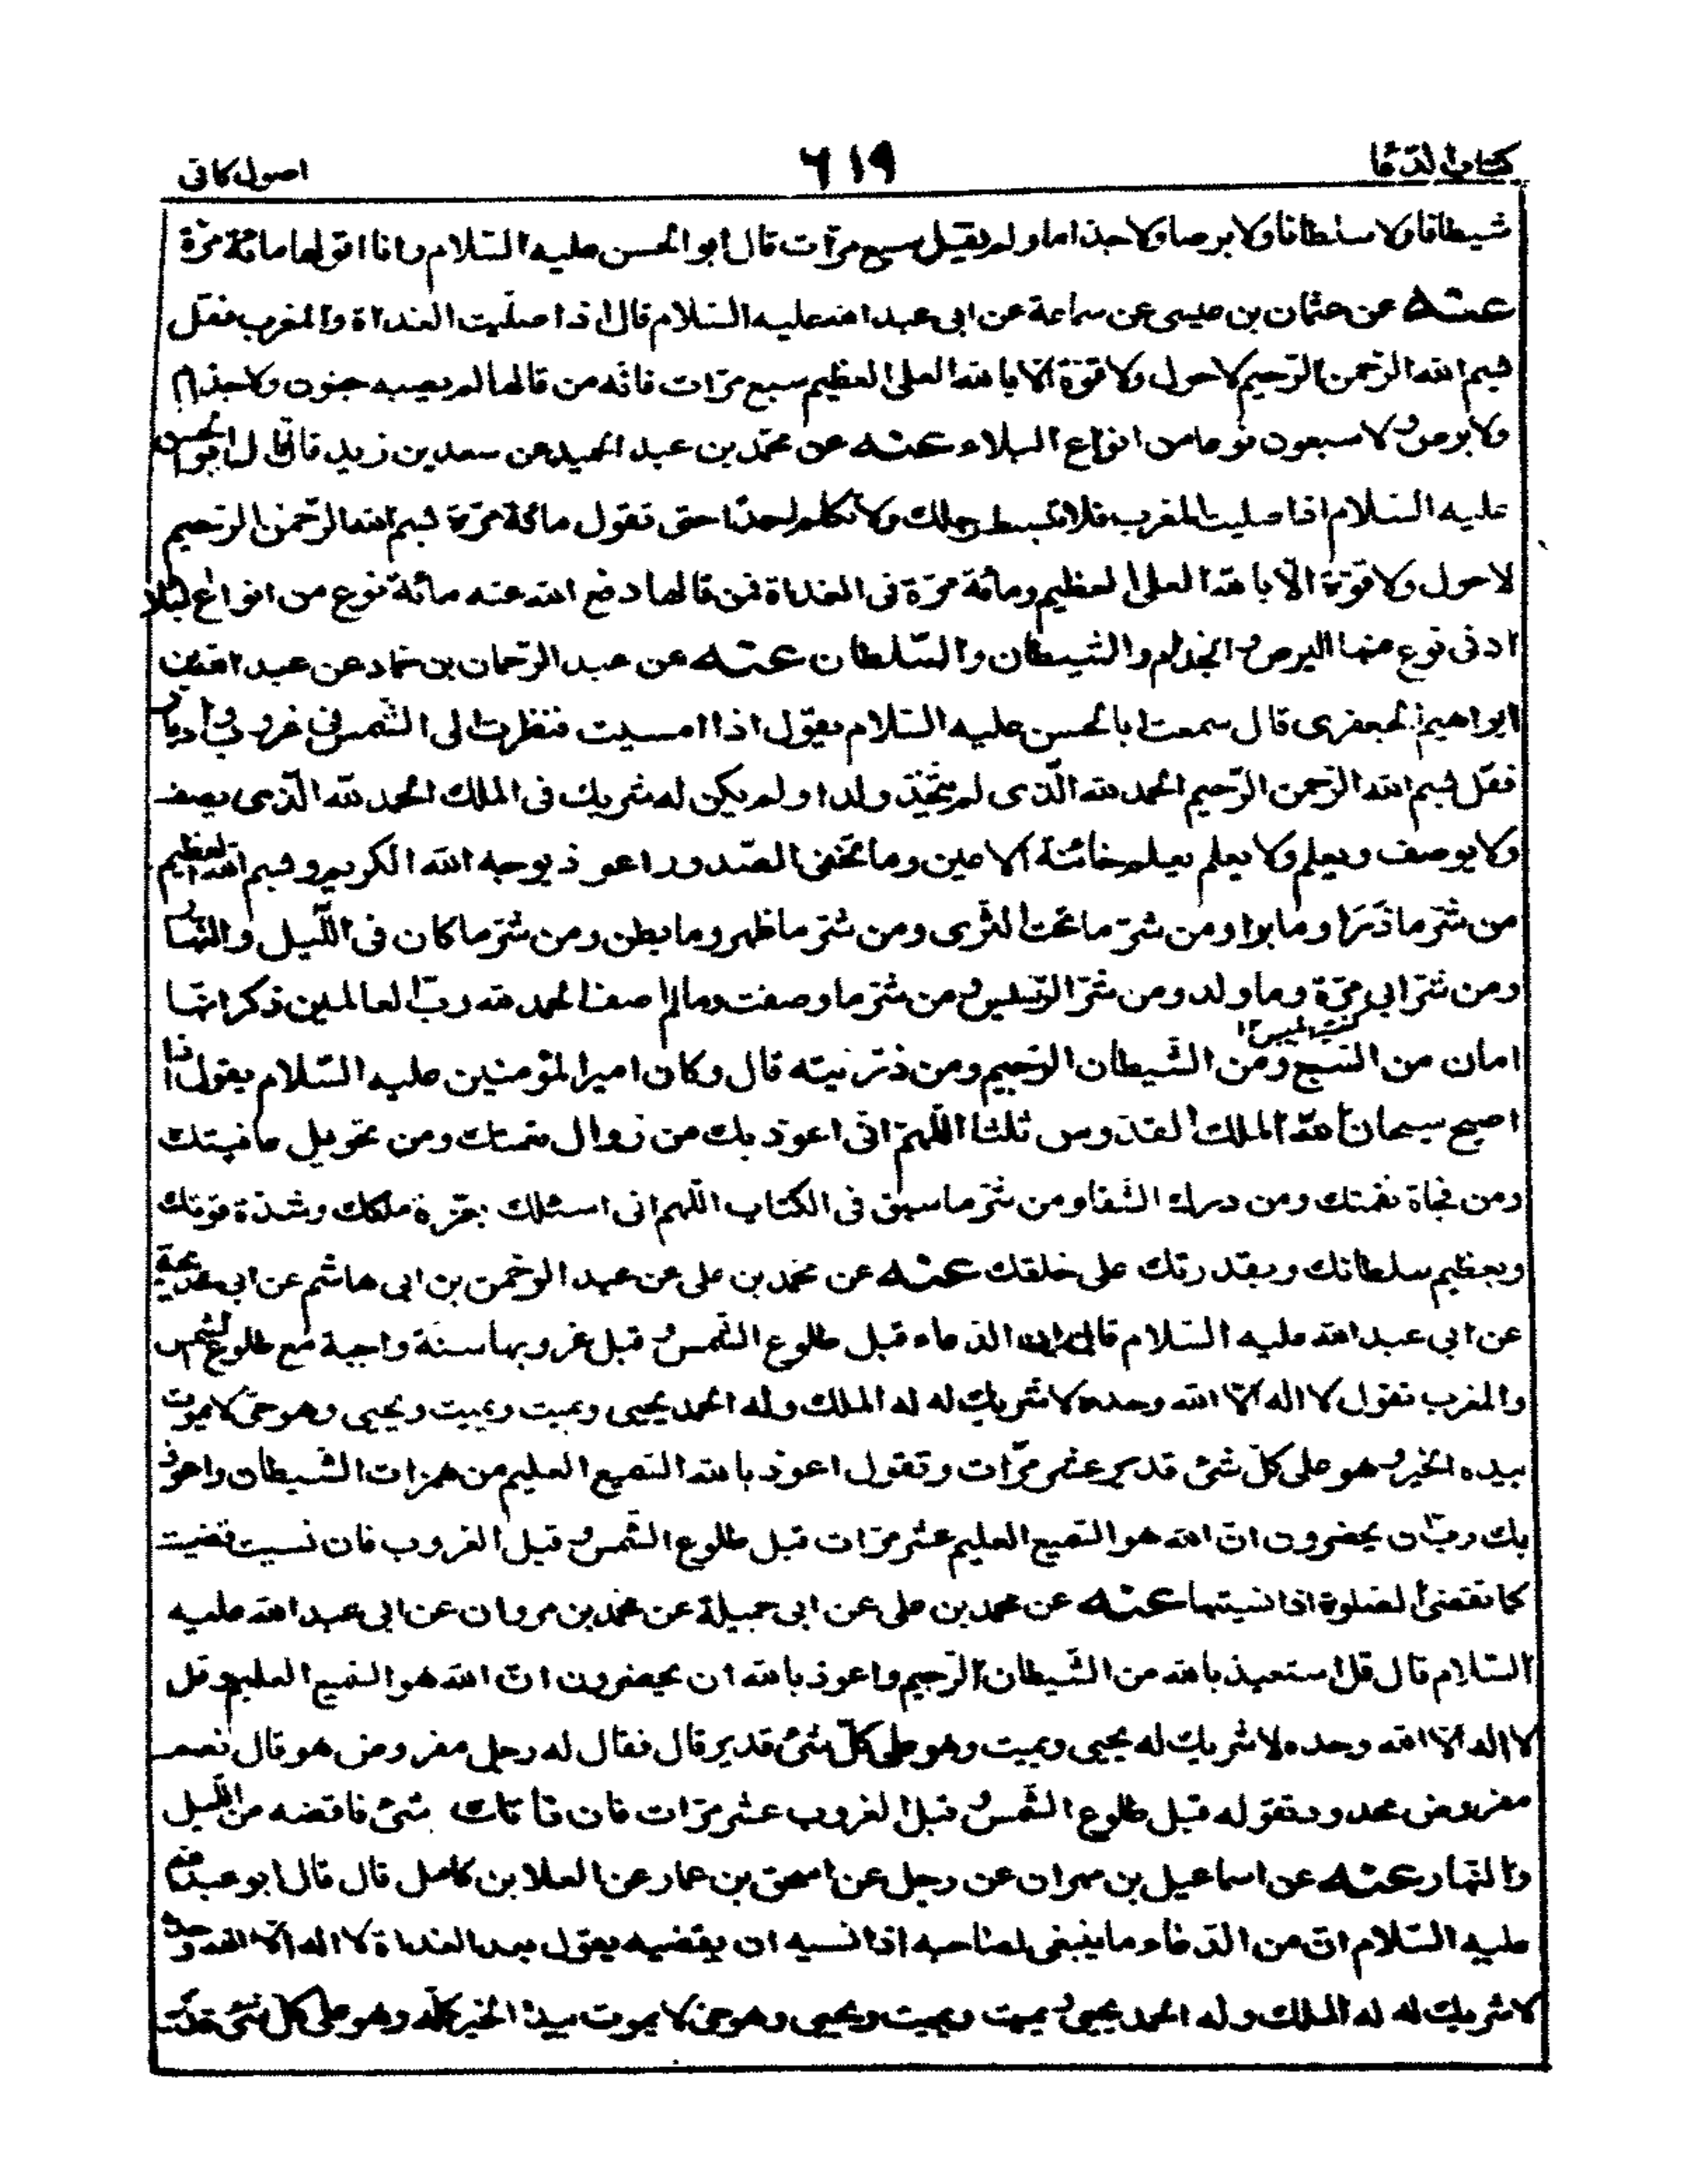 كتاب الدعا ٦١٩ اصول كافى
شيطانا ولا سلطانا ولا برصا ولا جذاما ولم يقل سبع مرّات قال ابو الحسن عليه السّلام وانا اقولها مائة مرّة
عنه عن عثمان بن عيسى عن سماعة عن ابى عبد الله عليه السّلام قال اذا صلّيت الغداة والمغرب فقل
بسم الله الرّحمن الرّحيم لا حول ولا قوّة الّا بالله العلى العظيم سبع مرّات فانّه من قالها لم يصبه جنون ولا جذام
ولا برص ولا سبعون نوعا من انواع البلاء عنه عن محمّد بن عبد الحميد عن سعد بن زيد قال قال ابو الحسن
عليه السّلام اذا صليت المغرب فلا تبسط رجلك ولا تكلم احدًا حتى تقول مائة مرّة بسم الله الرّحمن الرّحيم
لا حول ولا قوّة الّا بالله العلىّ العظيم ومائة مرّة فى الغداة فمن قالها دفع الله عنه مائة نوع من انواع البلا
ادنى نوع منها البرص والجذام والشيطان والسّلطان عنه عن عبد الرّحمان بن حماد عن عبد الله بن
ابراهيم الجعفرى قال سمعت ابا الحسن عليه السّلام يقول اذا امسيت فنظرت الى الشّمس فى غروب وادبار
فقل بسم الله الرّحمن الرّحيم الحمد لله الّذى لم يتّخذ ولدا ولم يكن له شريك فى الملك الحمد لله الّذى يصف
ولا يوصف ويعلم ولا يعلم يعلم خائنة الاعين وما تخفى الصّدور اعوذ بوجه الله الكريم وبسم الله العظيم
من شرّ ما ذَرَا وما برا ومن شرّ ما تحت الثّرى ومن شرّ ما ظهر وما بطن ومن شرّ ما كان فى اللّيل والنّهار
ومن شرّ ابى مرّة وما ولد ومن شرّ الرّسيس ومن شرّ ما وصفت وما لم اصف الحمد لله ربّ العالمين ذكر انّها
امان من السّبع ومن الشّيطان الرّجيم ومن ذرّيته قال وكان امير المؤمنين عليه السّلام يقول اذا
اصبح سبحان الله الملك القدّوس ثلثا اللّهمّ انّى اعوذ بك من زوال نعمتك ومن تحويل عافيتك
ومن فجاة نقمتك ومن درك الشّقا ومن شرّ ما سبق فى الكتاب اللّهم انى اسئلك بعزّة ملكك وشدّة قوّتك
وبعظيم سلطانك وبقدرتك على خلقك عنه عن محمّد بن على عن عبد الرّحمن بن ابى هاشم عن ابى خديجة
عن ابى عبد الله عليه السّلام قال ان الدّعاء قبل طلوع الشّمس و قبل غروبها سنة واجبة مع طلوع الشّمس
والمغرب تقول لا اله الّا الله وحده لا شريك له له الملك وله الحمد يحيى ويميت ويميت ويحيى وهو حىّ لا يموت
بيده الخير وهو على كلّ شئ قدير عشر مرّات وتقول اعوذ بالله السّميع العليم من همزات الشّيطان واعوذ
بك ربّ ان يحضرون انّ الله هو السّميع العليم عشر مرّات قبل طلوع الشّمس و قبل الغروب فان نسيت قضيت
كما تقضى الصّلوة اذا نسيتها عنه عن محمد بن على عن ابى جميلة عن محمد بن مروان عن ابى عبد الله عليه
السّلام قال قل استعيذ بالله من الشّيطان الرّجيم واعوذ بالله ان يحضرون انّ الله هو السّميع العليم وقل
لا اله الّا الله وحده لا شريك له يحيى ويميت وهو على كلّ شئ قدير قال فقال له رجل مفروض هو قال نعم
مفروض محدود تقوله قبل طلوع الشّمس و قبل الغروب عشر مرّات فان فاتك شئ فاقضه من اللّيل
والنّهار عنه عن اسماعيل بن مهران عن رجل عن اسحق بن عمار عن العلا بن كامل قال قال ابو عبد الله
عليه السّلام انّ من الدّعاء ما ينبغى لصاحبه اذا نسيه ان يقضيه يقول بعد الغداة لا اله الّا الله وحده
لا شريك له له الملك وله الحمد يحيى و يميت ويميت ويحيى وهو حىّ لا يموت بيده الخير كلّه وهو على كل شئ قدير